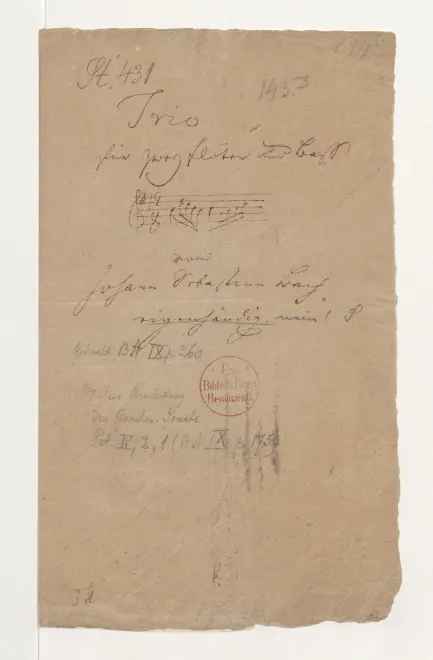 St. 431
143.
Trio
für zwey Flöten und Bass
von
Johann Sebastian Bach
eigenhändig, nein!
Gedruckt BA IX p. 260
Frühere Bearbeitung
Der Gamben-Sonate
Pet IV, 2, 1 (BA IX p. 175)
Ex
Biblioth. Regia
Berolinensi
38